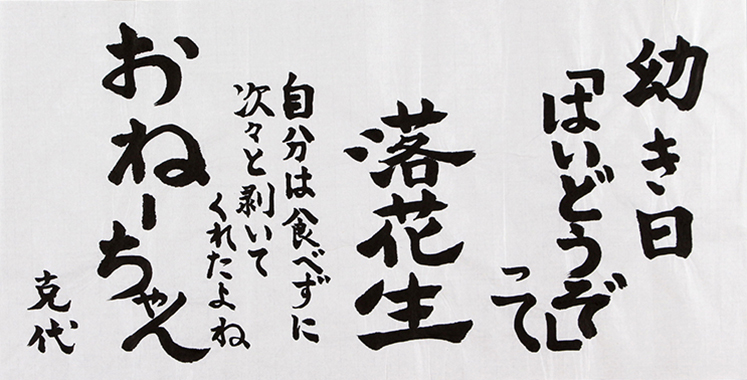 幼き日
「はいどうぞ」
って
落花生
自分は食べずに
次々と剥いて
くれたよね
おねーちゃん
克代